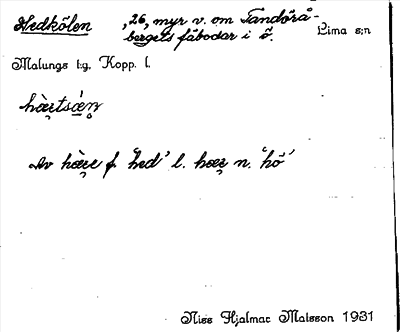 Hedkölen , 26, myr v. om Tandörå-
bergets fäbodar i ö. Lima s:n
Malungs t:g. Kopp. l.
Av f. 'hed' l. n. 'hö'
Niss Hjalmar Matsson 1931